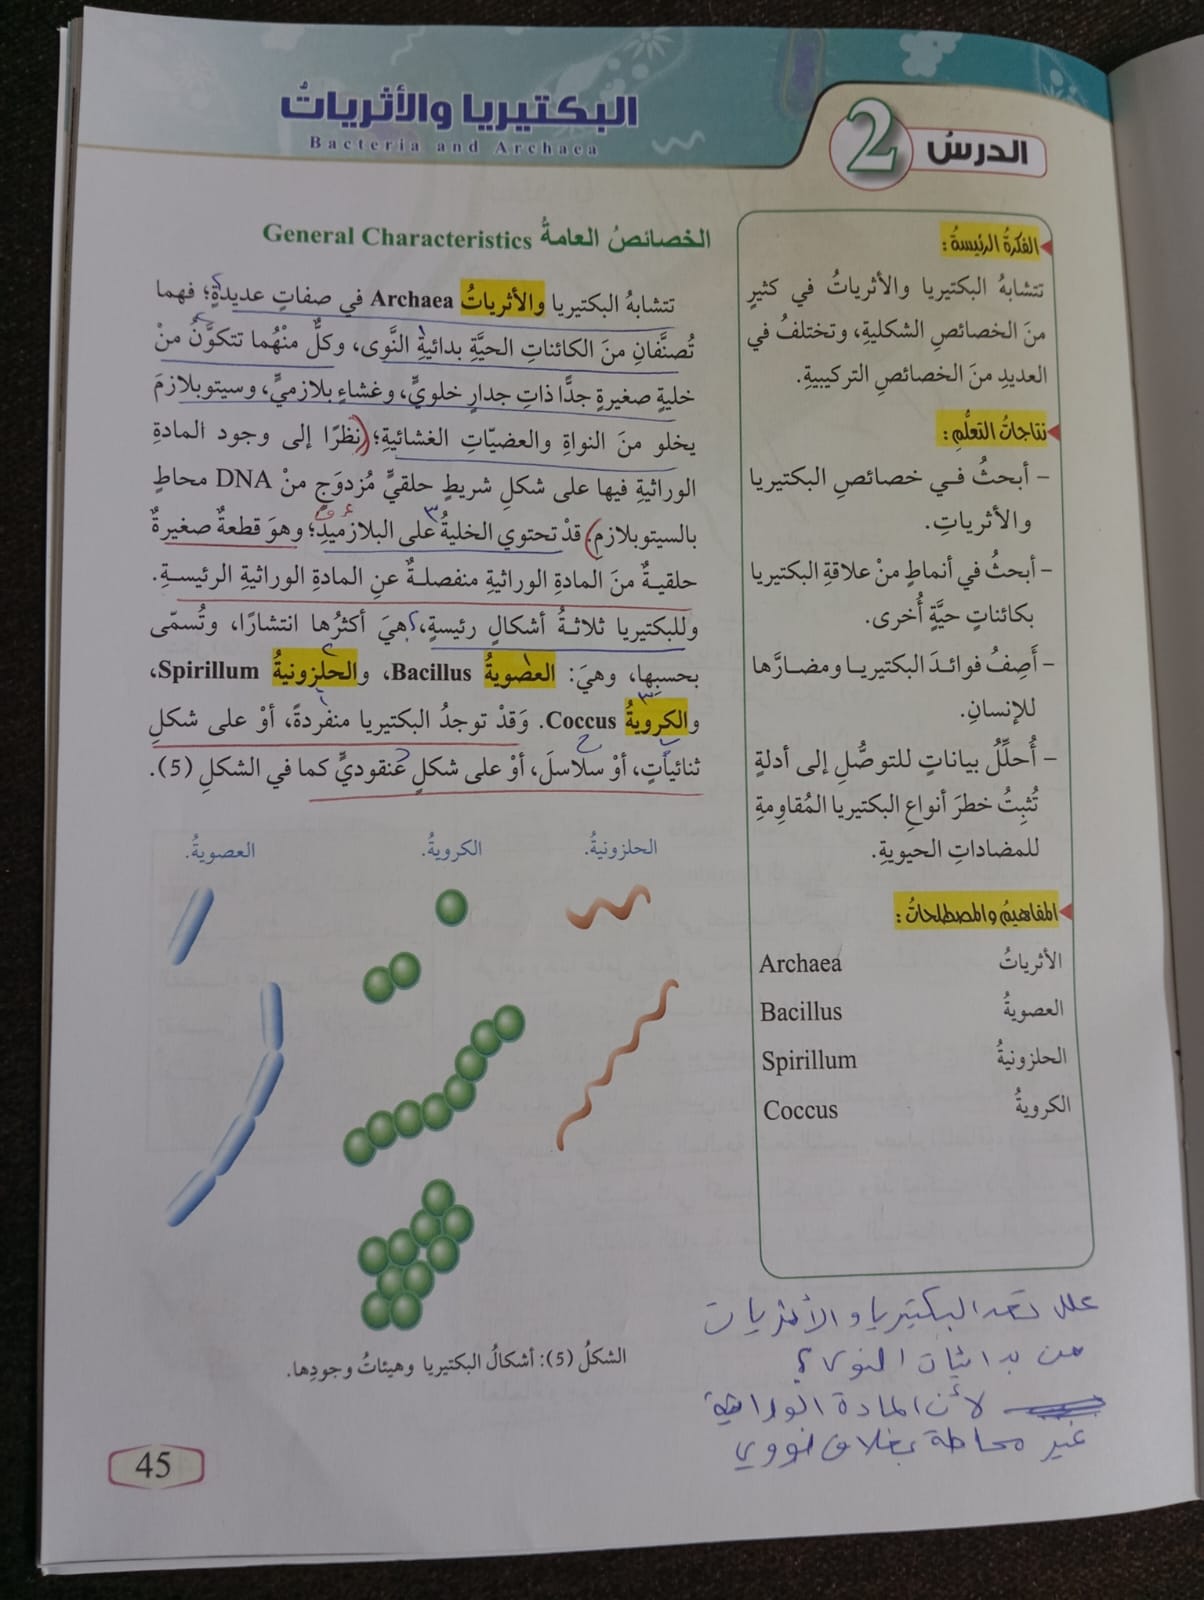 الدرسُ 2
البكتيريا والأثرياتُ
Bacteria and Archaea
الفكرةُ الرئيسةُ:
تتشابهُ البكتيريا والأثرياتُ في كثيرٍ
منَ الخصائصِ الشكليةِ، وتختلفُ في
العديدِ منَ الخصائصِ التركيبيةِ.
نتاجاتُ التعلُّمِ:
- أبحثُ في خصائصِ البكتيريا
والأثرياتِ.
- أبحثُ في أنماطٍ منْ علاقةِ البكتيريا
بكائناتٍ حيَّةٍ أُخرى.
- أَصِفُ فوائدَ البكتيريا ومضارَّها
للإنسانِ.
- أُحلِّلُ بياناتٍ للتوصُّلِ إلى أدلةٍ
تُثبِتُ خطرَ أنواعِ البكتيريا المُقاوِمةِ
للمضاداتِ الحيويةِ.
المفاهيمُ والمصطلحاتُ:
الأثرياتُ Archaea
العصويةُ Bacillus
الحلزونيةُ Spirillum
الكرويةُ Coccus
الخصائصُ العامةُ General Characteristics
تتشابهُ البكتيريا والأثرياتُ Archaea في صفاتٍ عديدةٍ؛ فهما
تُصنَّفانِ منَ الكائناتِ الحيَّةِ بدائيةِ النَّوى، وكلٌّ منْهُما تتكوَّنُ منْ
خليةٍ صغيرةٍ جدًّا ذاتِ جدارٍ خلويٍّ، وغشاءٍ بلازميٍّ، وسيتوبلازمَ
يخلو منَ النواةِ والعضيّاتِ الغشائيةِ؛ نظرًا إلى وجودِ المادةِ
الوراثيةِ فيها على شكلِ شريطٍ حلقيٍّ مُزدوَجٍ منْ DNA محاطٍ
بالسيتوبلازمِ. قدْ تحتوي الخليةُ على البلازميدِ؛ وهوَ قطعةٌ صغيرةٌ
حلقيةٌ منَ المادةِ الوراثيةِ منفصلةٌ عنِ المادةِ الوراثيةِ الرئيسةِ.
وللبكتيريا ثلاثةُ أشكالٍ رئيسةٍ، هيَ أكثرُها انتشارًا، وتُسمّى
بحسبِها، وهيَ: العصويةُ Bacillus، والحلزونيةُ Spirillum،
والكرويةُ Coccus. وَقدْ توجدُ البكتيريا منفردةً، أوْ على شكلِ
ثنائياتٍ، أوْ سلاسلَ، أوْ على شكلٍ عنقوديٍّ كما في الشكلِ (5).
الحلزونيةُ. الكرويةُ. العصويةُ.
الشكلُ (5): أشكالُ البكتيريا وهيئاتُ وجودِها.
علل تعد البكتيريا والأثريات
من بدائيات النوى؟
لأن المادة الوراثية
غير محاطة بغلاف نووي
45